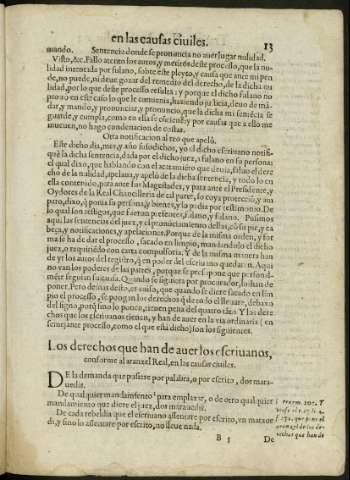 en las causas ciuiles. 13
mando. Sentencia donde se pronuncia no auer lugar nulidad.
Visto, &c. Fallo atento los autos, y meritos deste processo, que la nu-
lidad intentada por fulano, sobre este pleyto, y causa que ante mi pen
de, no puede, ni deue gozar del remedio del derecho, de la dicha nu
lidad, por lo que deste processo resulta: y porque el dicho fulano no
prouò en este caso lo que le conuenia, haziendo justicia, deuo de mã-
dar, y mando, y pronunciar, y pronuncio, que la dicha mi sentẽcia se
guarde, y cumpla, como en ella se contiene: y por causas que a ello me
mueuen, no hago condenacion de costas.
Otra notificacion al reo que apelò.
Este dicho dia, mes, y año susodichos, yo el dicho escriuano notifi-
què la dicha sentencia, dada por el dicho juez, a fulano en su persona:
el qual dixo, que hablando con el acatamiento que deuia,
cho de la nulidad, apelaua, y apelò de la dicha sentencia, y todo lo en
ella contenido, para ante su Magestad, y para ante el Presidente, y
Oydores de la Real Chancilleria de tal parte, so cuya proteccion
puso, dixo, q̃ ponia su persona, y bienes, y lo pidio por testimonio. De
lo qual son testigos, que fueron presentes, fulano, y fulano. Pussimos
aqui las sentencias del juez, y el pronunciamiento dellas, cõ su pie, y ca
beça, y notificaciones, y apelaciones. Porque de la misma orden, y for
ma se ha de dar el processo, sacado en limpio, mandandolo el dicho
juez, o requiriendo con carta compulsoria. Y de la misma manera han
de yr los autos del registro, q̃ en poder del escriuano quedarẽ. Aqui
no van los poderes de las partes, porque se presupone que
siguen su causa. Quando se siguiera por procurador, lo han de
poner. Pero demas desto, es cosa, que quando se diere sacado en lim
pio el processo, se pongan los derechos q̃ de todo el lleuare, debaxo
del signo, porq̃ sino lo pone, incurre pena del quatro tãto. Y las dere
chos que los escriuanos tienen, y han de auer en la via ordinaria, en
semejante processo, como el que està dicho, son los siguientes.
Los derechos que han de auer los escriuanos,
conforme al aranzel Real, en las causas ciuiles.
DE la demanda que passare por palabra, o por escrito, dos mara-
uedis.
De qualquier mandamiento para emplazar, o de otro qualquier
mandamiento que diere el juez, dos marauedis.
De cada rebeldia que el escriuano assentare por escrito, vn maraue
di, y sino lo assentare por escrito, no lleue nada.
B 5 De